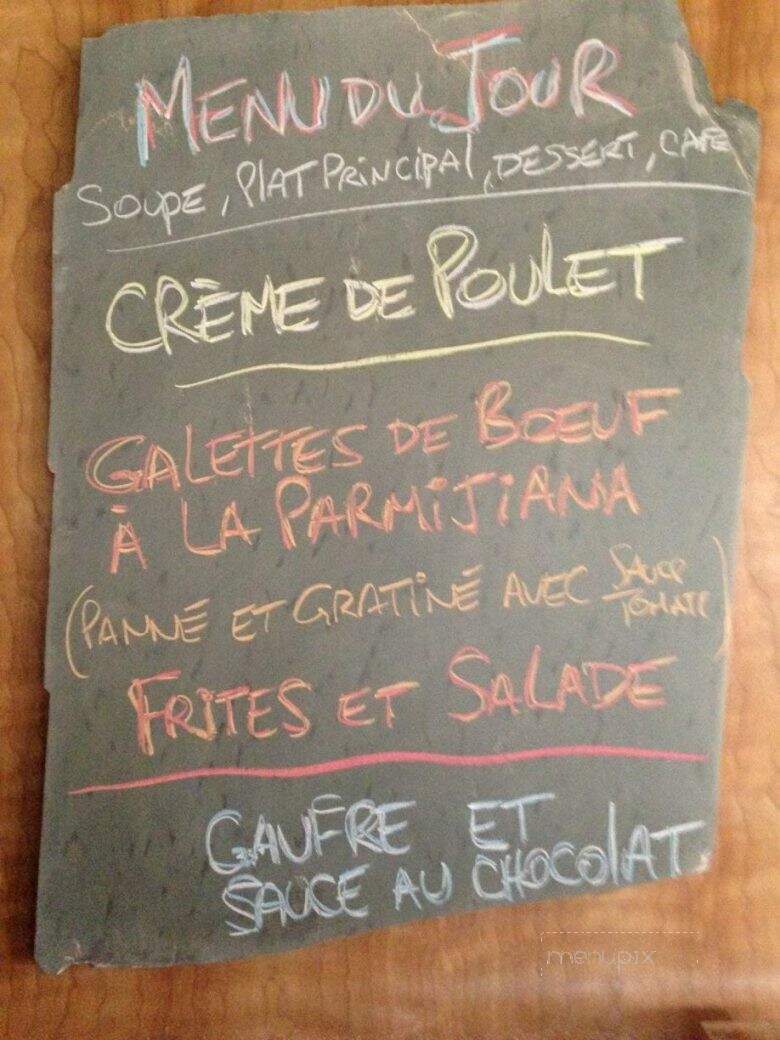 MENU DU JOUR
SOUPE, PLAT PRINCIPAL, DESSERT, CAFE
CRÈME DE POULET
GALETTES DE BOEUF
À LA PARMIJIANA
(PANNÉ ET GRATINÉ AVEC SAUCE TOMATE)
FRITES ET SALADE
GAUFRE ET
SAUCE AU CHOCOLAT
menupix